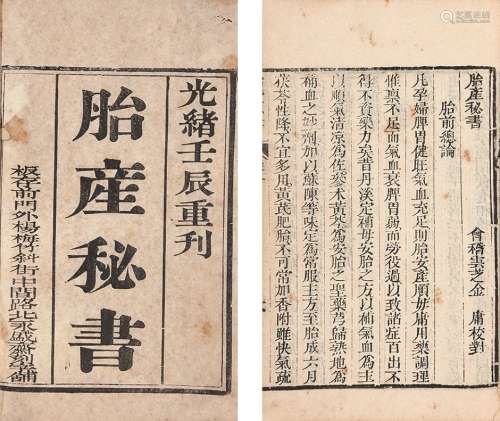 光緒壬辰重刊
胎產秘書
板存前門外楊梅竹斜街中間路北永盛齋刻字鋪
胎產秘書
會稽雲芝金 庸校對
胎前總論
凡孕婦脾胃健旺氣血充足則胎安產順毋庸用藥調理
惟稟不足血氣衰脾胃弱而勞役過以致諸症百出不
得不資藥力矣昔丹溪定補母安胎之方以補氣血為主
以順氣清涼為佐參术黃芩為安胎之聖藥芎歸熟地為
補血之妙劑加以蘇陳等味定為常服主方至胎成六月
茯苓性降不宜多用黃芪肥胎不可常加香附雖快氣疏